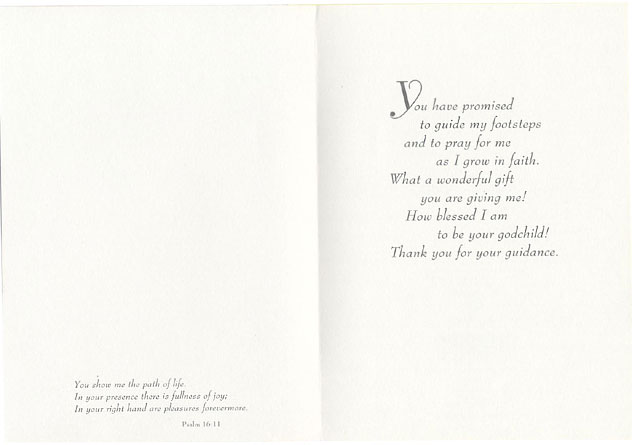 You show me the path of life.
In your presence there is fullness of joy;
In your right hand are pleasures forevermore.
Psalm 16:11
You have promised
to guide my footsteps
and to pray for me
as I grow in faith.
What a wonderful gift
you are giving me!
How blessed I am
to be your godchild!
Thank you for your guidance.